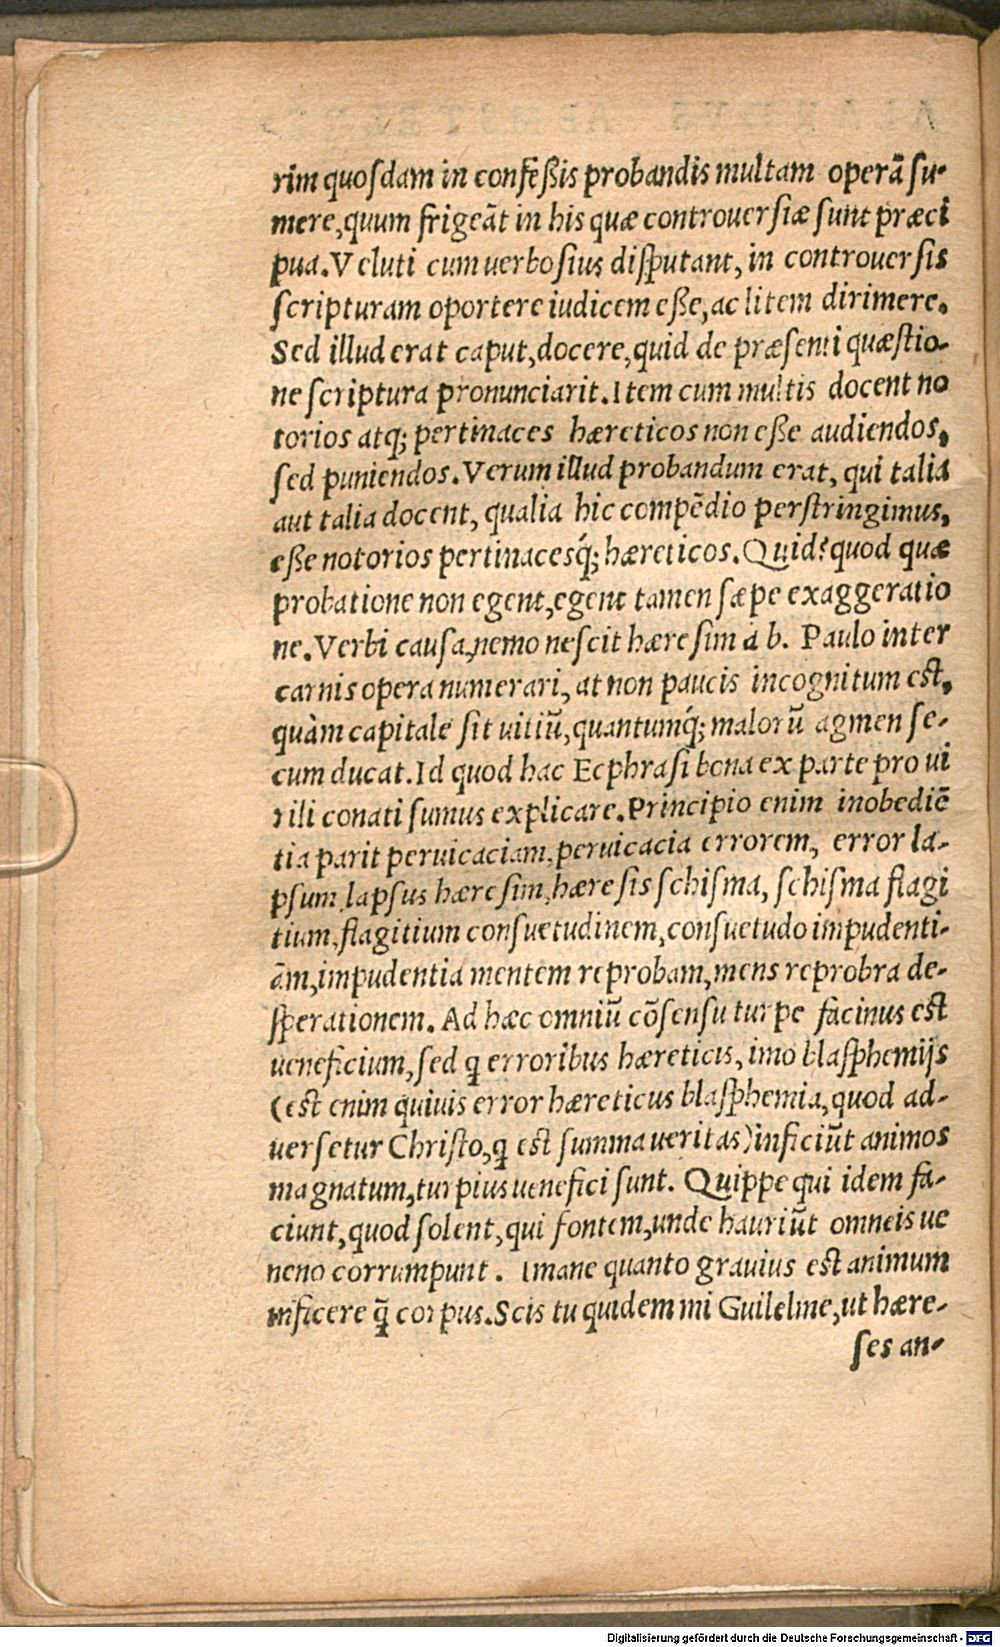 rim quosdam in confeßis probandis multam operã su-
mere, quum frigeãt in his quæ controuersiæ sunt præci
pua. Veluti cum uerbosius disputant, in controuersis
scripturam oportere iudicem eße, ac litem dirimere.
Sed illud erat caput, docere, quid de præsenti quæstio-
ne scriptura pronunciarit. Item cum multis docent no
torios atq; pertinaces hæreticos non eße audiendos,
sed puniendos. Verum illud probandum erat, qui talia
aut talia docent, qualia hic compẽdio perstringimus,
eße notorios pertinacesq́; hæreticos. Quid? quod quæ
probatione non egent, egent tamen sæpe exaggeratio
ne. Verbi causa, nemo nescit hæresim à b. Paulo inter
carnis opera numerari, at non paucis incognitum est,
quàm capitale sit uitiũ, quantumq́; malorũ agmen se-
cum ducat. Id quod hac Ecphrasi bona ex parte pro ui
rili conati sumus explicare. Principio enim inobediẽ
tia parit peruicaciam, peruicacia errorem, error la-
psum, lapsus hæresim, hæresis schisma, schisma flagi
tium, flagitium consuetudinem, consuetudo impudenti-
ãm, impudentia mentem reprobam, mens reprobra de-
sperationem. Ad hæc omniũ cõsensu turpe facinus est
ueneficium, sed q̃ erroribus hæreticis, imo blasphemijs
(est enim quiuis error hæreticus blasphemia, quod ad-
uersetur Christo, q̃ est summa ueritas) inficiũt animos
magnatum, turpius uenefici sunt. Quippe qui idem fa-
ciunt, quod solent, qui fontem, unde hauriũt omneis ue
neno corrumpunt. Imane quanto grauius est animum
inficere q̃ corpus. Scis tu quidem mi Guilelme, ut hære-
ses an-
Digitalisierung gefördert durch die Deutsche Forschungsgemeinschaft - DFG